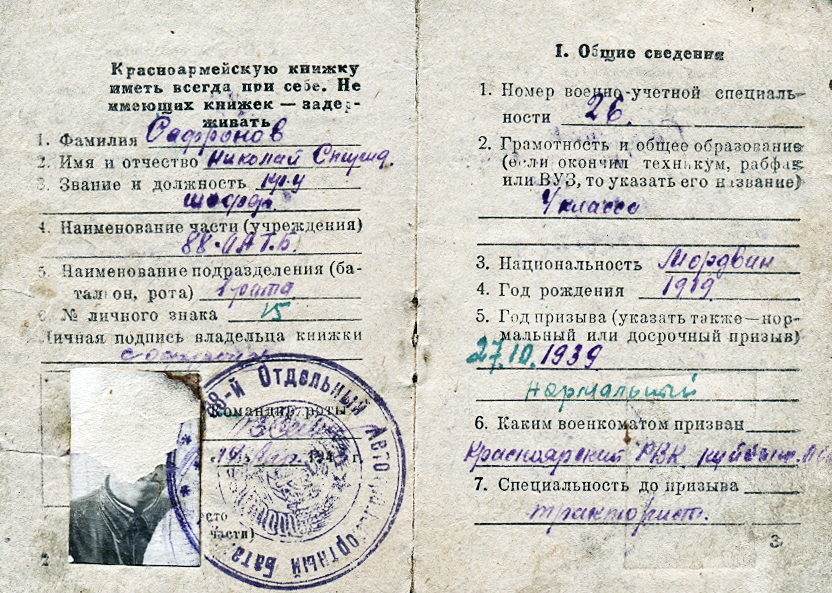 Красноармейскую книжку
иметь всегда при себе. Не
имеющих книжек — задер-
живать
1. Фамилия Сафронов
2. Имя и отчество Николай
3. Звание и должность кр-ц
шофер
4. Наименование части (учреждения)
88
5. Наименование подразделения (ба-
тальон, рота) 1 рота
6. № личного знака 15
Личная подпись владельца книжки
Сафронов
Командир роты
194 г.
части)
88-й Отдельный Автотранспортный Бата
2
I. Общие сведения
1. Номер военно-учетной специаль-
ности 26.
2. Грамотность и общее образование
(если окончил техникум, рабфак
или ВУЗ, то указать его название)
4 класса
3. Национальность Мордвин
4. Год рождения 1919
5. Год призыва (указать также—нор-
мальный или досрочный призыв)
27.10.1939
нормальный
6. Каким военкоматом призван
Красноярский РВК куйбыш.
7. Специальность до призыва
тракторист.
3